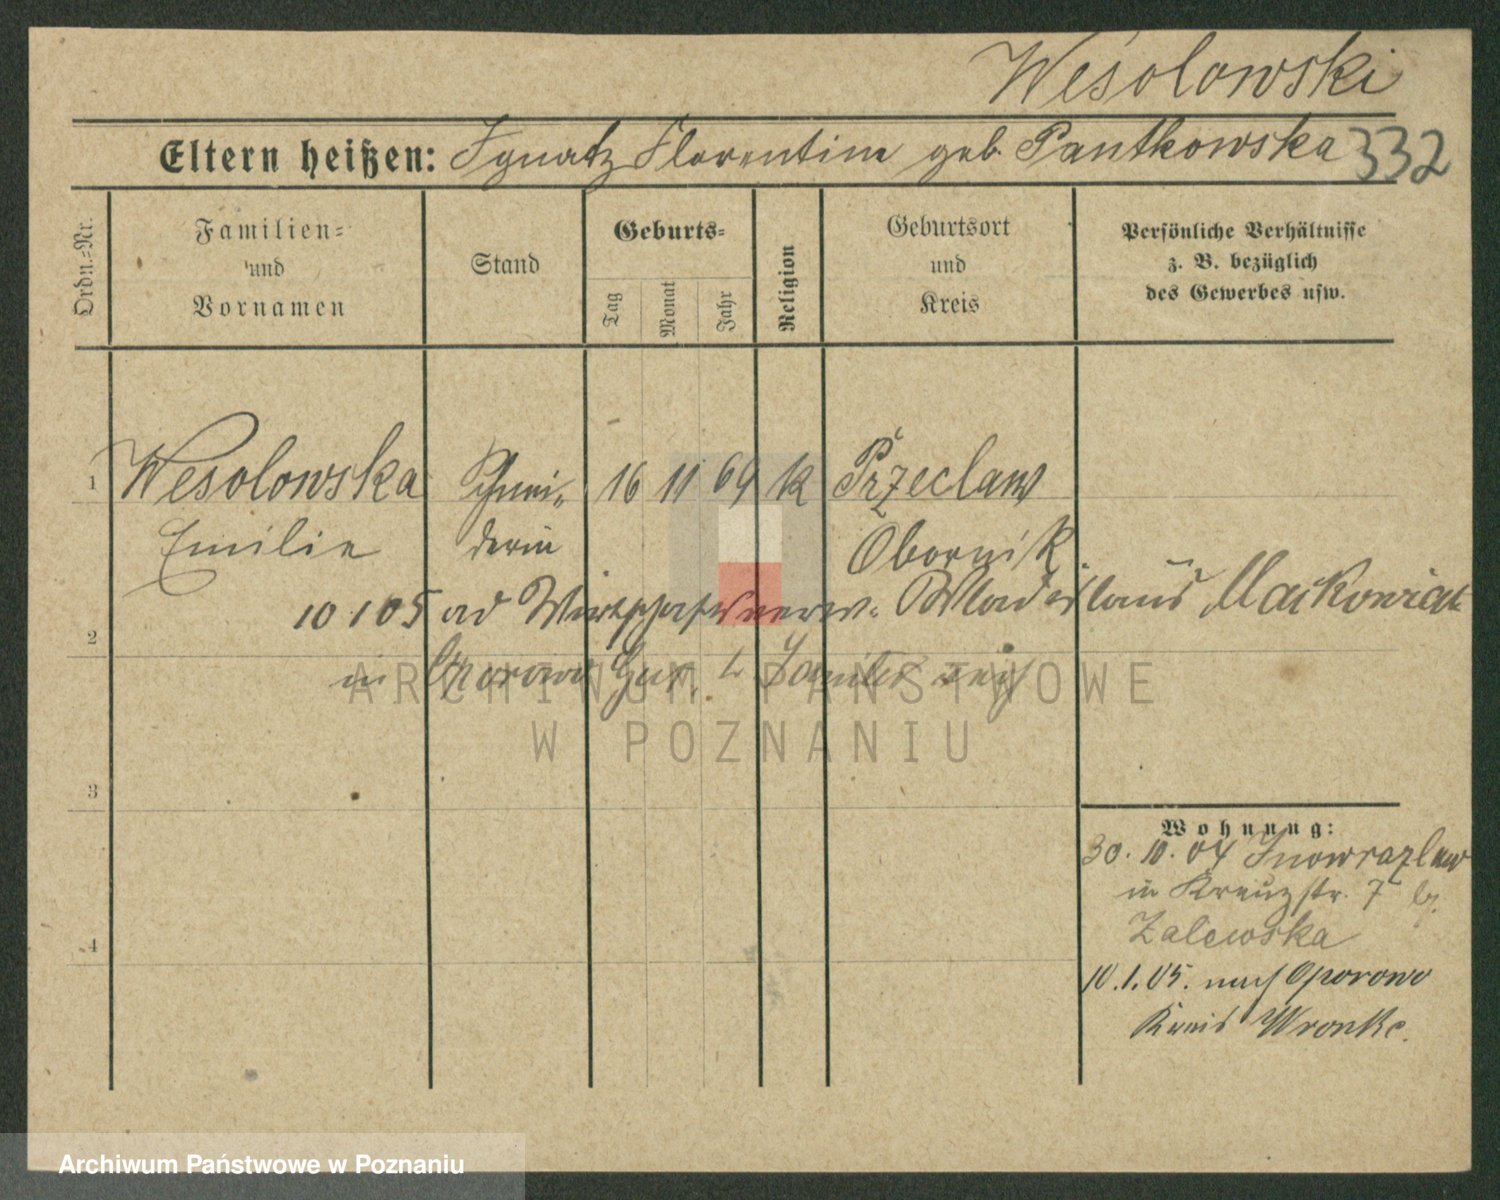 Wesolowski
Eltern heißen: Ignatz Florentine geb. Pantkowska 332
Ordn.-Nr.
Familien-
und
Vornamen
Stand
Geburts-
Tag
Monat
Jahr
Religion
Geburtsort
und
Kreis
Persönliche Verhältnisse
z. B. bezüglich
des Gewerbes usw.
1 Wesolowska Schnei- 16 11 69 k Przeclaw
Emilie derin Obornik
10 1 05 ad Wirtschaftsverw. Wladislaus Maikowiak
2
in Oporowo
ARCHIWUM PAŃSTWOWE
W POZNANIU
3
4
Wohnung:
30. 10. 04 Inowrazlaw
in Kreuzstr. 7 b.
Zalewska
10. 1. 05. nach Oporowo
Kreis Wronke.
Archiwum Państwowe w Poznaniu